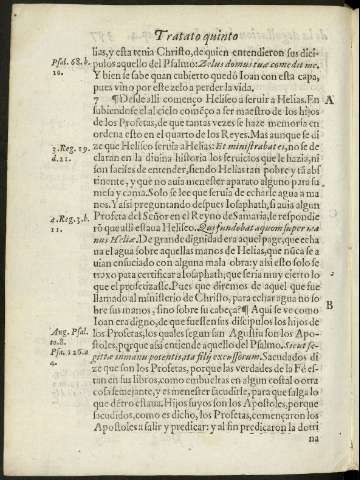 Tratato quinto
lias, y esta tenia Christo, de quien entendieron sus dici-
pulos aquello del Psalmo: Zelus domus tuæ comedit me.
Y bien se sabe quan cubierto quedó Ioan con esta capa,
pues vino por este zelo a perder la vida.
7 ¶ Desde alli començo Heliseo a seruir a Helias. En
subiendose el al cielo começo a ser maestro de los hijos
de los Profetas, de que tantas vezes se haze memoria en
ordena esto en el quarto de los Reyes. Mas aunque se di-
ze que Heliseo seruia a Helias: Et ministrabat ei, no se de-
claran en la diuina historia los seruicios que le hazia, ni
son faciles de entender, siendo Helias tan pobre y tã absti-
tinente, y que no auia menester aparato alguno para su
mesa y cama. Solo se lee que seruia de echarle agua a ma-
nos. Y assi preguntando despues Iosaphath, si auia algun
Profeta del Señor en el Reyno de Samaria, le respondie
rõ que alli estaua Heliseo. Qui fundebat aquam super ma
nus Heliæ. De grande dignidad era aquel page, que echa
ua el agua sobre aquellas manos de Helias, que nũca se a
uian ensuciado con alguna mala obra: y assi esto solo se
troxo para certificar a Iosaphath, que seria muy cierto lo
que el profetizasse. Pues que diremos de aquel que fue
llamado al ministerio de Christo, para echar agua no so
bre sus manos, sino sobre su cabeça? ¶ Aqui se ve como
Ioan era digno, de que fuessen sus dicipulos los hijos de
los Profetas, los quales segun san Agustin son los Apo-
stoles, porque assi entiende aquello del Psalmo. Sicut se-
gittæ in manu potentis, ita filij excussorum. Sacudados di
ze que son los Profetas, porque las verdades de la Fè es-
tan en sus libros, como embueltas en algun costal o otra
cosa semejante, y es menester sacudirle, para que salga lo
que dẽtro estaua. Hijos suyos son los Apostoles, porque
sacudidos, como es dicho, los Profetas, començaron los
Apostoles a salir y predicar: y al fin predicaron la dotri
na
Psal. 68. b.
10.
3. Reg. 19.
d. 21.
4. Reg. 3. b.
11.
Aug. Psal.
to. 8.
Psa. 126. a
4.
A
B